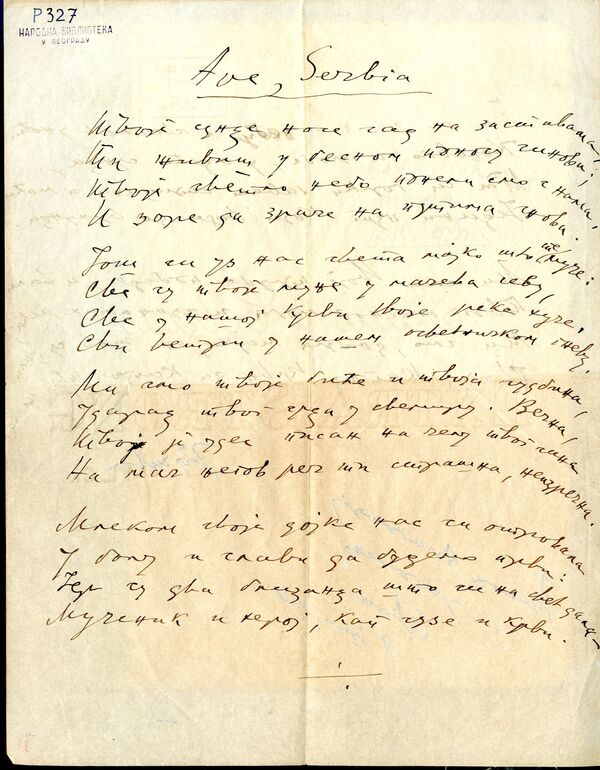 Р327
НАРОДНА БИБЛИОТЕКА
У БЕОГРАДУ
Ave, Serbia
Твоје сунце носе сад на заставама,
Ти живиш у бесном поносу синова;
Твоје светло небо понели смо с нама,
И зоре да зраче на путима снова.
Још си уз нас света мајко што те муче:
Све су твоје муње у мачева севу,
Све у нашој крви твоје реке хуче,
Сви ветри у нашем осветничком гневу.
Ми смо твоје биће и твоја судбина,
Ударац твог срца у свемиру. Вечна,
Твој је удес писан на челу твог сина
На мач његов реч ти страшна, неизречна.
Млеком своје дојке нас си отровала
У болу и слави да будемо први:
Јер су два близанца што си на свет дала—
Мученик и херој, кап сузе и крви.